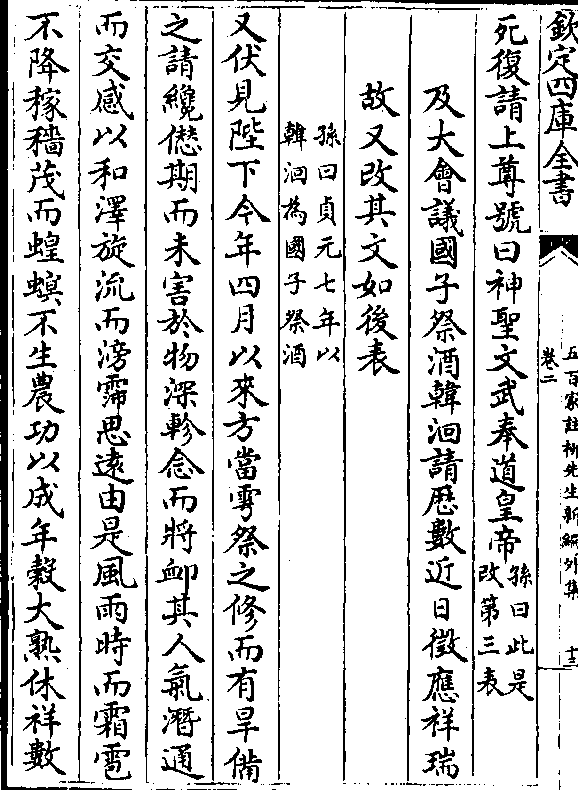 欽定四庫全書
五百家註柳先生新編外集
卷二
十三
死復請上尊號曰神聖文武奉道皇帝孫曰此是改第三表
及大會議國子祭酒韓洄請歷數近日徵應祥瑞
故又改其文如後表
孫曰貞元七年以
韓洄為國子祭酒
又伏見陛下今年四月以來方當雩祭之修而有旱備
之請纔愆期而未害於物深軫念而將䘏其人氣潛通
而交感以和澤旋流而滂霈思遠由是風雨時而霜雹
不降稼穡茂而蝗螟不生農功以成年穀大熟休祥數